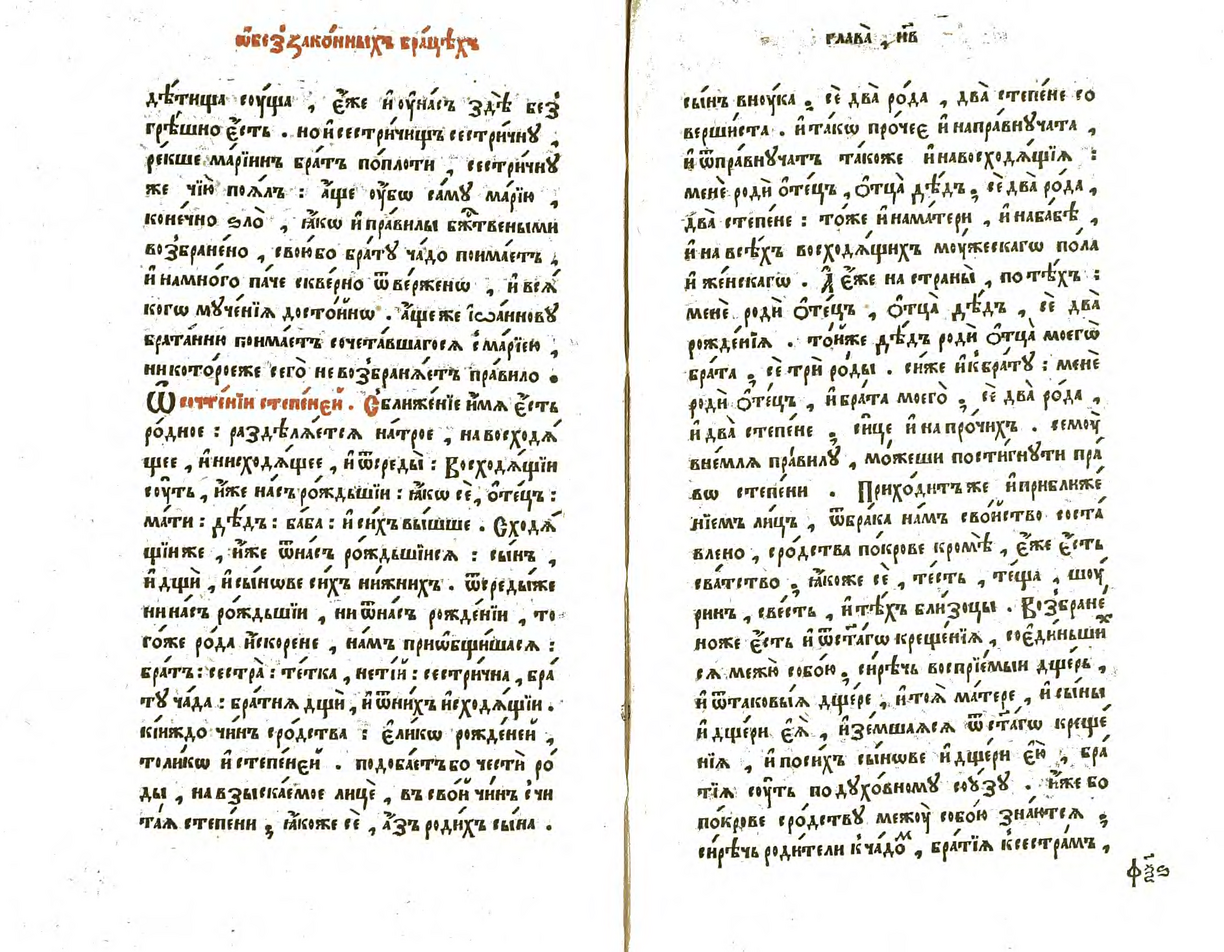 ѡ҆без̾зако́нныхъ бра́цѣхъ
дѣ́тища сѹ́ща , є҆́же и҆ ѹ҆на́съ здѣ̀ без̾
грѣ́шно є҆́сть . но и҆ сестри́чищъ сестри́чнꙋ ,
ре́кше марі́инъ бра́тъ попло́ти , сестри́чнꙋ
же чїю̀ поѧ́лъ : а҆́ще ѹ҆́бѡ са́мꙋ марі́ю ,
коне́чно ѕло̀ , ꙗ҆́кѡ и҆ пра́вилы бж҃твеными
воз̾бране́но , свою́бо бра́тꙋ ча́до поима́етъ ,
и҆ намно́го па́че скве́рно ѿве́рженѡ , и҆ всѧ́
когѡ мꙋче́нїѧ досто́йнѡ . а҆́щеже і҆ѡа́нновꙋ
брата́нии поима́етъ сочета́вшагосѧ с̾ марі́ею ,
ни кото́роеже сего̀ не воз̾бранѧ́етъ пра́вило .
Ѿ сочте́нїи степе́ней . Сближе́нїе и҆́мѧ є҆́сть
ро́дное : раздѣлѧ́етсѧ на́трое , на восходѧ́
щее , и҆ нисходѧ́щее , и҆ ѿсреды̀ : Восходѧ́щїи
сѹ́ть , и҆́же на́съ ро́ждьшїи : ꙗ҆́кѡ сѐ , ѻ҆те́цъ :
ма́ти : дѣ́дъ : ба́ба : и҆ си́хъ вы́шше . Сходѧ́
щїиже , и҆́же ѿна́съ ро́ждьшїисѧ : сы́нъ ,
и҆ дщѝ , и҆ сы́новѣ си́хъ ни́жнихъ . ѿсреды́же
ни на́съ ро́ждьшїи , ни ѿна́съ рожде́нїи , то
го́же ро́да и҆ ско́рене , на́мъ прїѡбщи́шасѧ :
бра́тъ : сестра̀ : те́тка , нетїй : сестри́чна , бра́
тꙋ ча́да : бра́тнѧ дщѝ , и҆ ѿни́хъ и҆сходѧ́щїи .
кі́иждо чи́нъ сро́дства : є҆ли́кѡ рожде́ней ,
толи́кѡ и҆ степе́ней . подоба́етъбо честѝ ро́
ды , на взыска́емое лицѐ , въ сво́й чи́нъ с̾чи
та́ѧ степе́ни ; ꙗ҆́коже сѐ , а҆́зъ роди́хъ сы́на .
глава̀ , н҃в
сы́нъ внѹ́ка ; сѐ два̀ ро́да , два̀ степе́не со
верши́ста . и҆ та́кѡ про́чеє и҆ напра́внꙋчата ,
и҆ ѿпра́внꙋчатъ та́коже и҆ на восходѧ́щїѧ :
менѐ родѝ ѻ҆те́цъ , ѻ҆тца̀ дѣ́дъ ; сѐ два̀ ро́да ,
два̀ степе́не : то́же и҆ нама́тери , и҆ наба́бѣ ,
и҆ на всѣ́хъ восходѧ́щихъ мѹ́жескагѡ по́ла
и҆ же́нскагѡ . А҆ є҆́же на страны̀ , по тѣ́хъ :
менѐ родѝ ѻ҆те́цъ , ѻ҆тца̀ дѣ́дъ , сѐ два̀
рожде́нїѧ . то́йже дѣ́дъ родѝ ѻ҆тца̀ моегѡ̀
бра́та ; сѐ трѝ ро́ды . си́же и҆ к̾бра́тꙋ : менѐ
родѝ ѻ҆те́цъ , и҆ бра́та моего̀ ; сѐ два̀ ро́да ,
и҆ два̀ степе́не ; си́це и҆ на про́чихъ . семѹ̀
вне́млѧ пра́вилꙋ , мо́жеши пости́гнꙋти пра́
вѡ степе́ни . Прихо́дитъже и҆ приближе́
нїемъ ли́цъ , ѿбра́ка на́мъ сво́йство соста́
влено , сро́дства по́крове кромѣ̀ , є҆́же є҆́сть
сва́тство ; ꙗ҆́коже сѐ , те́сть , те́ща , шѹ́
ринъ , све́сть , и҆ тѣ́хъ бли́зоцы . Воз̾бране́
ноже є҆́сть и҆ ѿст҃а́гѡ креще́нїѧ , соє҆ди́ньшихъ
сѧ межю̀ собо́ю ; си́рѣчь воспрїе́мыи дще́рь ,
и҆ ѿтаковы́ѧ дще́ре , и҆ тоѧ̀ ма́тере , и҆ сы́ны
и҆ дще́ри є҆ѧ̀ , и҆зе́мшаѧсѧ ѿст҃а́гѡ креще́
нїѧ , и҆ по си́хъ сы́новѣ и҆ дще́ри є҆ю̀ , бра́
тїѧ сѹ́ть по дꙋхо́вномꙋ сою́зꙋ . и҆́же бо
по́крове сро́дствꙋ межѹ̀ собо́ю зна́ютсѧ ;
си́рѣчь роди́тели к̾ча́домъ , бра́тїѧ к̾сестра́мъ ,
ф҃ѯѕ